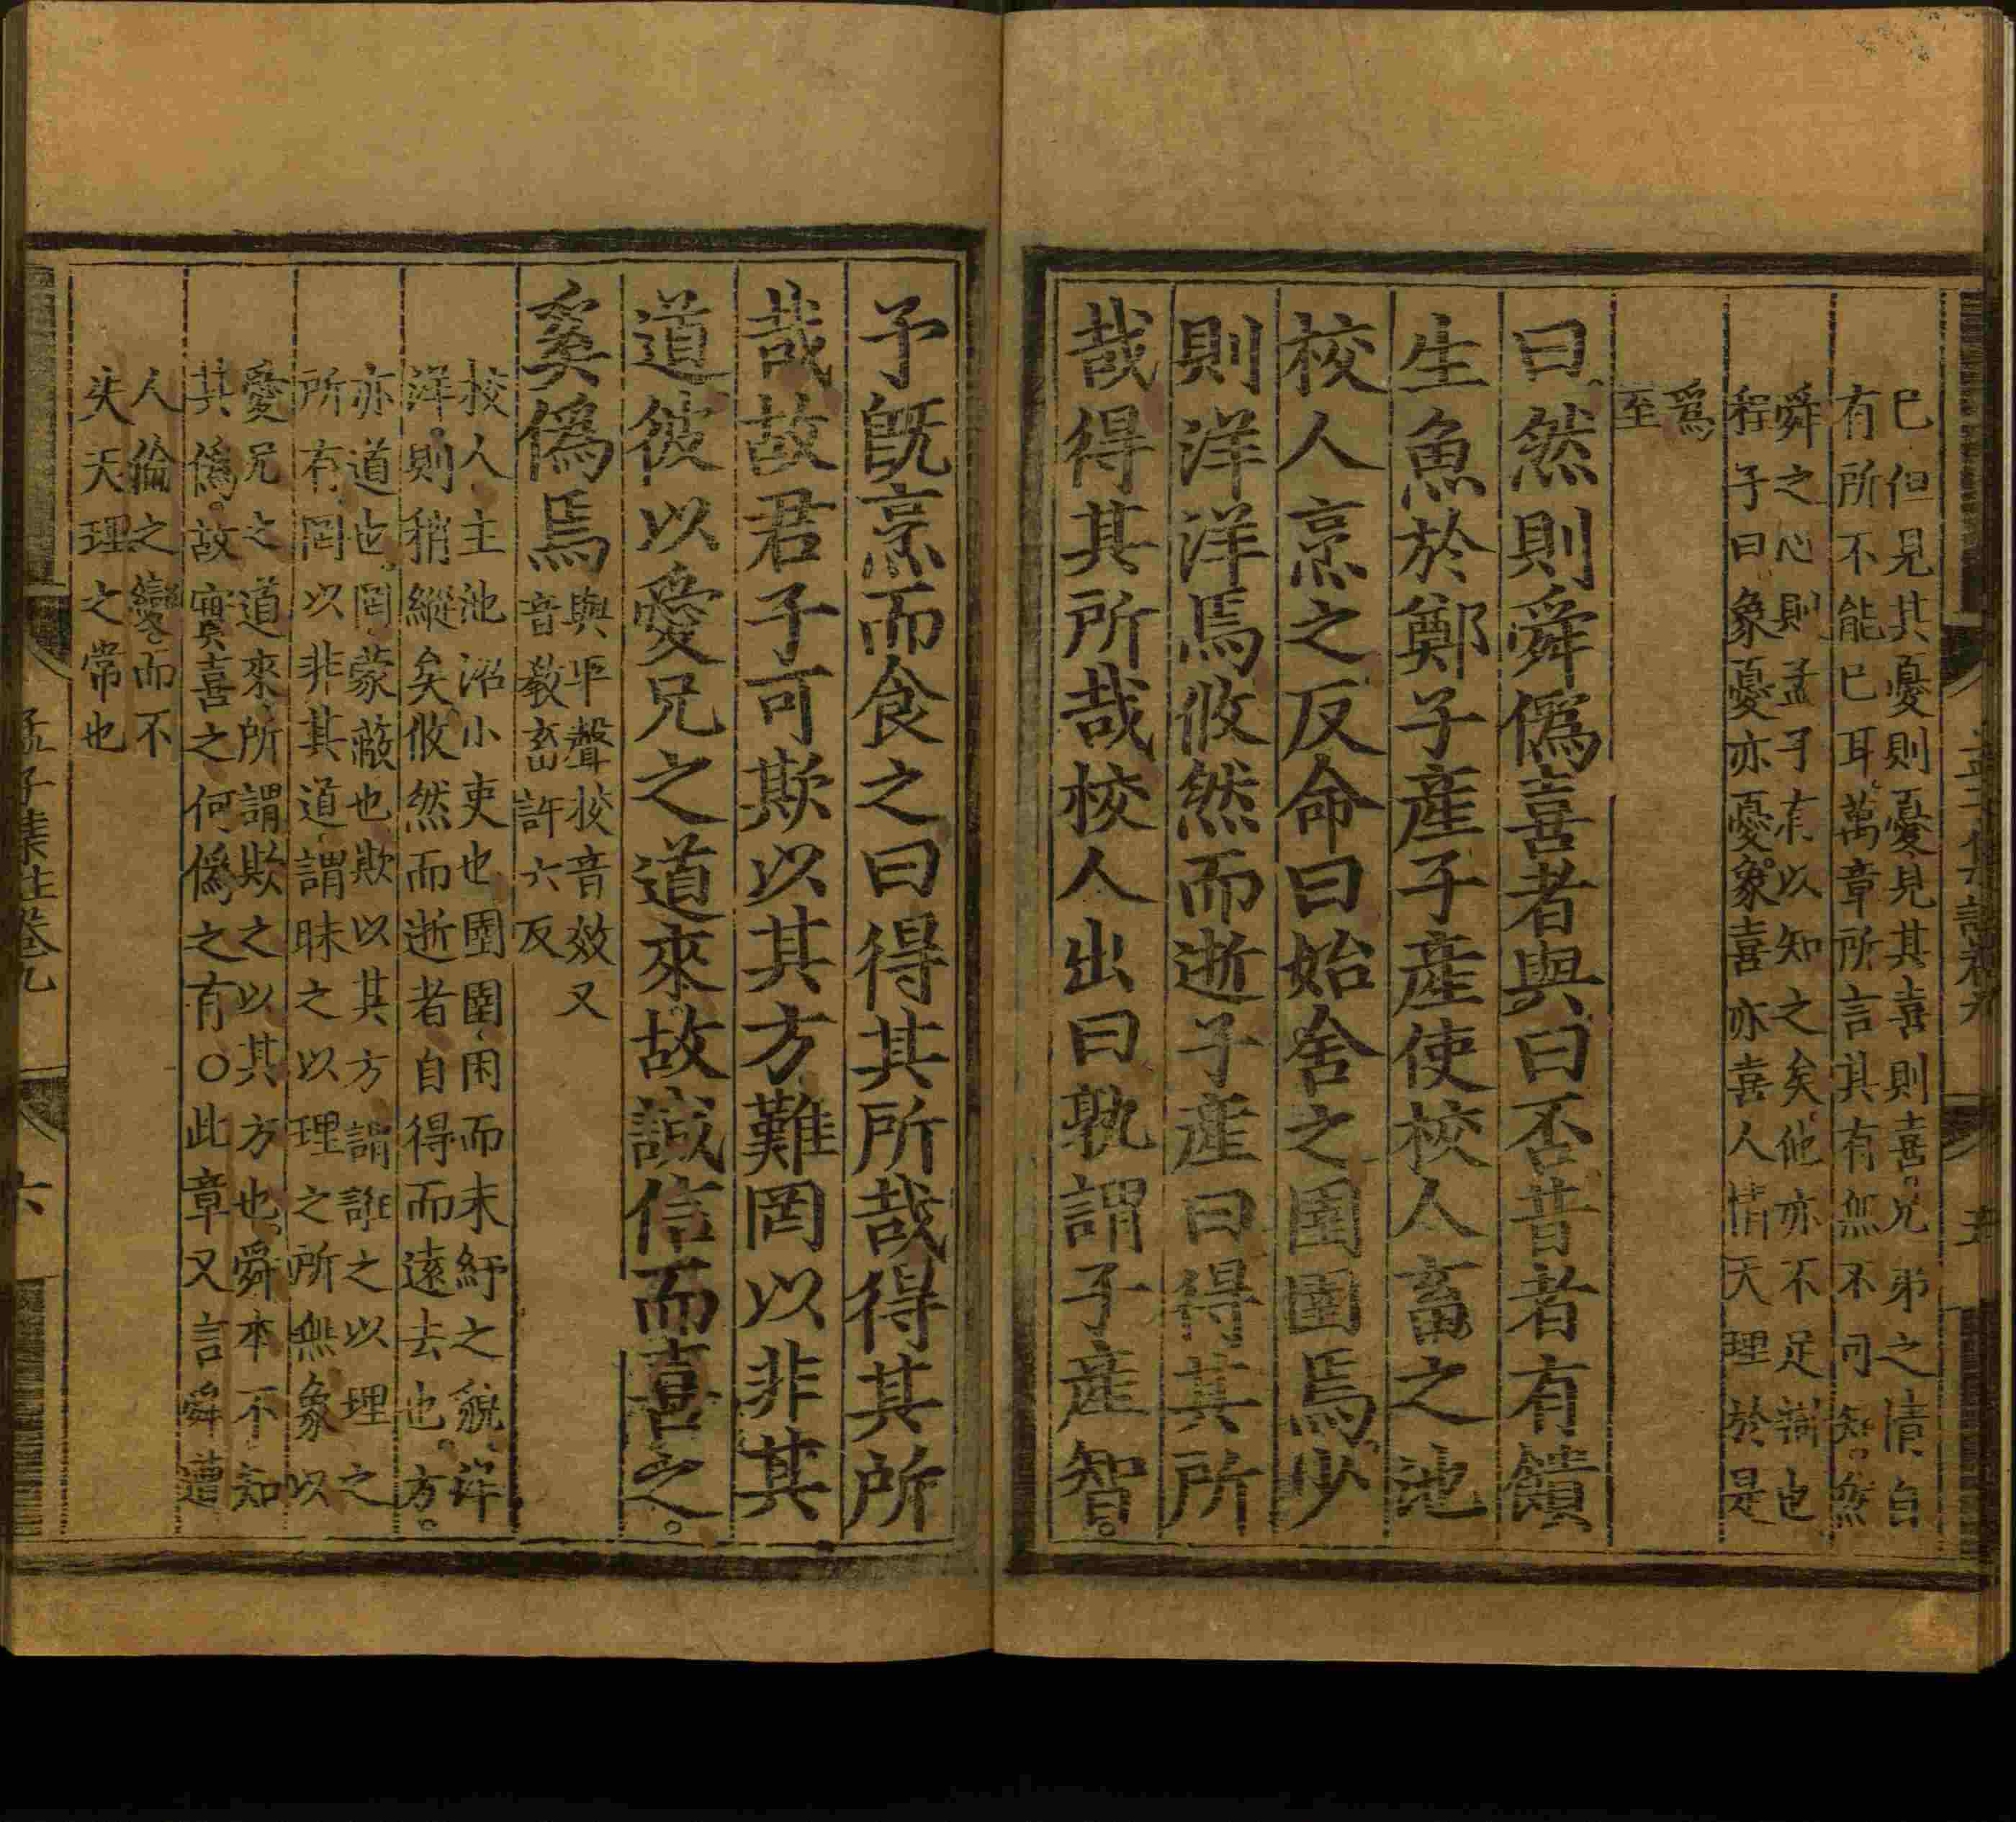 已但見其憂則憂見其喜則喜兄弟之情自
有所不能已耳萬章所言其有無不可知然
舜之心則孟子有以知之矣他亦不足辨也
程子曰象憂亦憂象喜亦喜人情天理於是
爲
至
曰然則舜僞喜者與曰否昔者有饋
生魚於鄭子產子產使校人畜之池
校人烹之反命曰始舍之圉圉焉少
則洋洋焉攸然而逝子產曰得其所
哉得其所哉校人出曰孰謂子產智
予旣烹而食之曰得其所哉得其所
哉故君子可欺以其方難罔以非其
道彼以愛兄之道來故誠信而喜之
奚僞焉
與平聲校音效又
音敎畜許六反
校人主池沼小吏也圉圉困而未紓之貌洋
洋則稍縱矣攸然而逝者自得而遠去也方
亦道也罔蒙蔽也欺以其方謂誑之以理之
所有罔以非其道謂昧之以理之所無象以
愛兄之道來所謂欺之以其方也舜本不知
其僞故實喜之何僞之有○此章又言舜遭
人倫之變而不
失天理之常也
孟子集註卷九
六